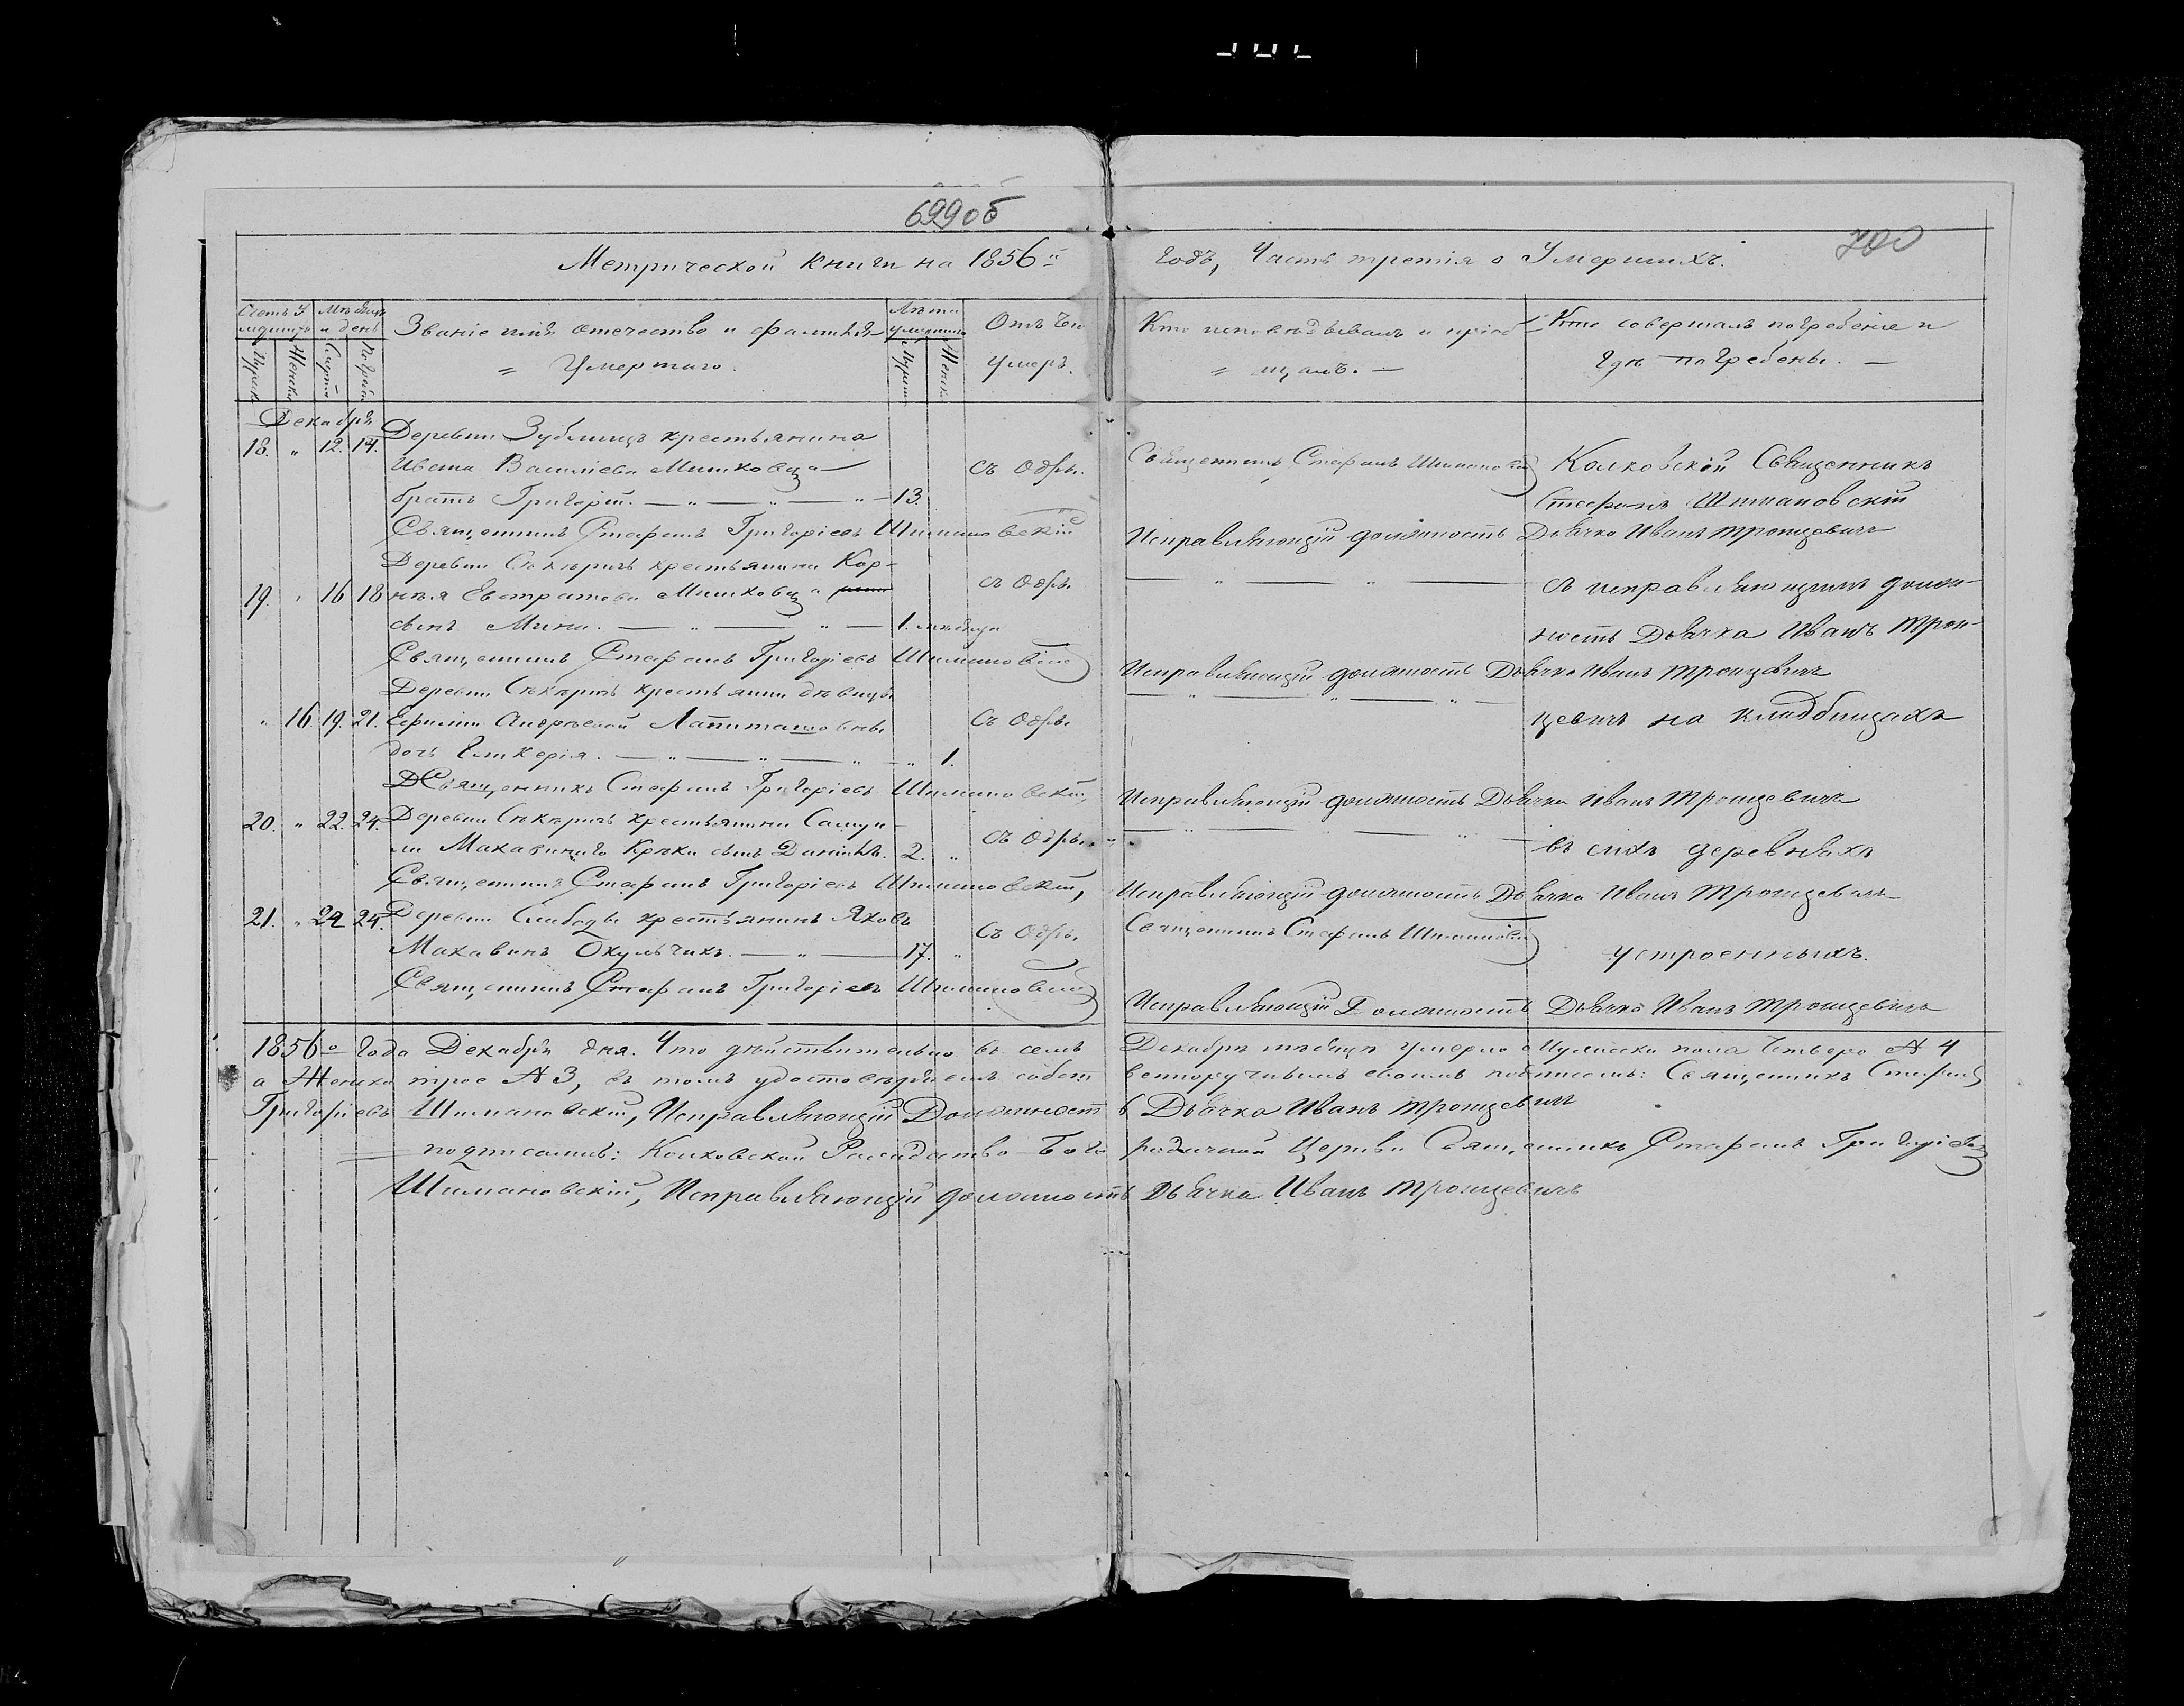 699об
700
Метрической книги на 1856й
годъ, Часть третія о Умершихъ.
Счетъ У
мершихъ
Мѣсяцъ
и день
Званіе имя отечество и фамилія
Умершаго.
Лѣта
умершаго
Отъ чего
умеръ.
Кто исповѣдывалъ и пріоб
щалъ.
Кто совершалъ погребеніе и
гдѣ погребены.
Мужеск
Женск
Смерти
Погреб
Мужеск
Женск
Декабрь
18. " 12. 14. Деревни Зублищъ крестьянина
Ивана Василіева Мишковца
братъ Григорій. 13.
съ одры.
Священникъ Стефанъ Шимановскій
Колковской Священникъ
Стефанъ Шимановскій
Священникъ Стефанъ Григоріевъ Шимановскій
Исправляющій должность Дьячка Иванъ Троицевичъ
Деревни крестьянина Кор-
19. " 16 18 нея Евстратова Мишковца
съ одры.
съ исправляющимъ долж-
сынъ Мина. 1. мѣсяца
ность Дьячка Иванъ Трои-
Священникъ Стефанъ Григоріевъ Шимановскій
Исправляющій должность Дьячка Иванъ Троицевичъ
Деревни крестьянки дѣвицы
" 16. 19. 21. Андреевой
съ одры.
цевичъ на кладбищахъ
дочь Гликерія. " 1.
Священникъ Стефанъ Григоріевъ Шимановскій,
Исправляющій должность Дьячка Иванъ Троицевичъ
20. " 22. 24. Деревни крестьянина Самуи-
ла сынъ Даніилъ. 2. "
съ одры.
въ сихъ деревняхъ
Священникъ Стефанъ Григоріевъ Шимановскій,
Исправляющій должность Дьячка Иванъ Троицевичъ
21. " 22 24. Деревни Слободы крестьянинъ Яковъ
Окульчикъ. 17. "
съ одры.
Священникъ Стефанъ Шимановскій
устроенныхъ.
Священникъ Стефанъ Григоріевъ Шимановскій
Исправляющій Должность Дьячка Иванъ Троицевичъ
1856го года Декабря дня. Что дѣйствительно въ семъ Декабрѣ мѣсяцѣ умерло Мужеска пола Четверо № 4
а Женска трое № 3, въ томъ удостовѣряемъ собственноручнымъ своимъ подписомъ: Священникъ Стефанъ
Григоріевъ Шимановскій, Исправляющій Должность Дьячка Иванъ Троицевичъ
подписалъ: Колковской Рождество-Богородичной Церкви Священникъ Стефанъ Григоріевъ
Шимановскій, Исправляющій должность Дьячка Иванъ Троицевичъ